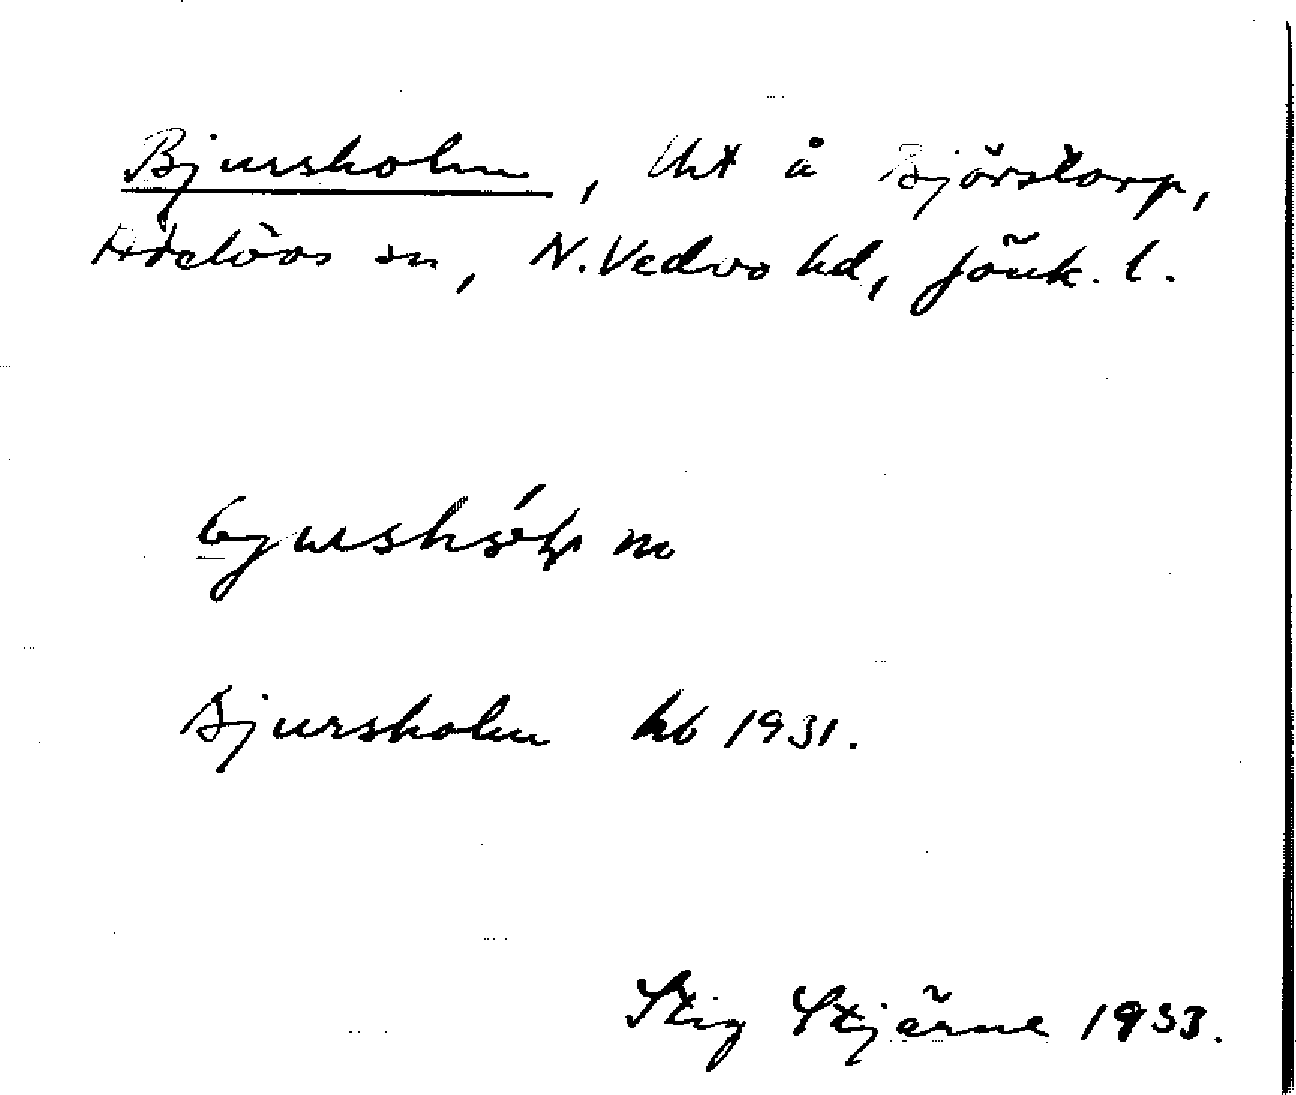 Bjursholm, lht å Björstorp,
Adelövs sn, N. Vedbo hd, Jönk. l.
Bjursholm hb 1931.
Stig Stjärne 1933.